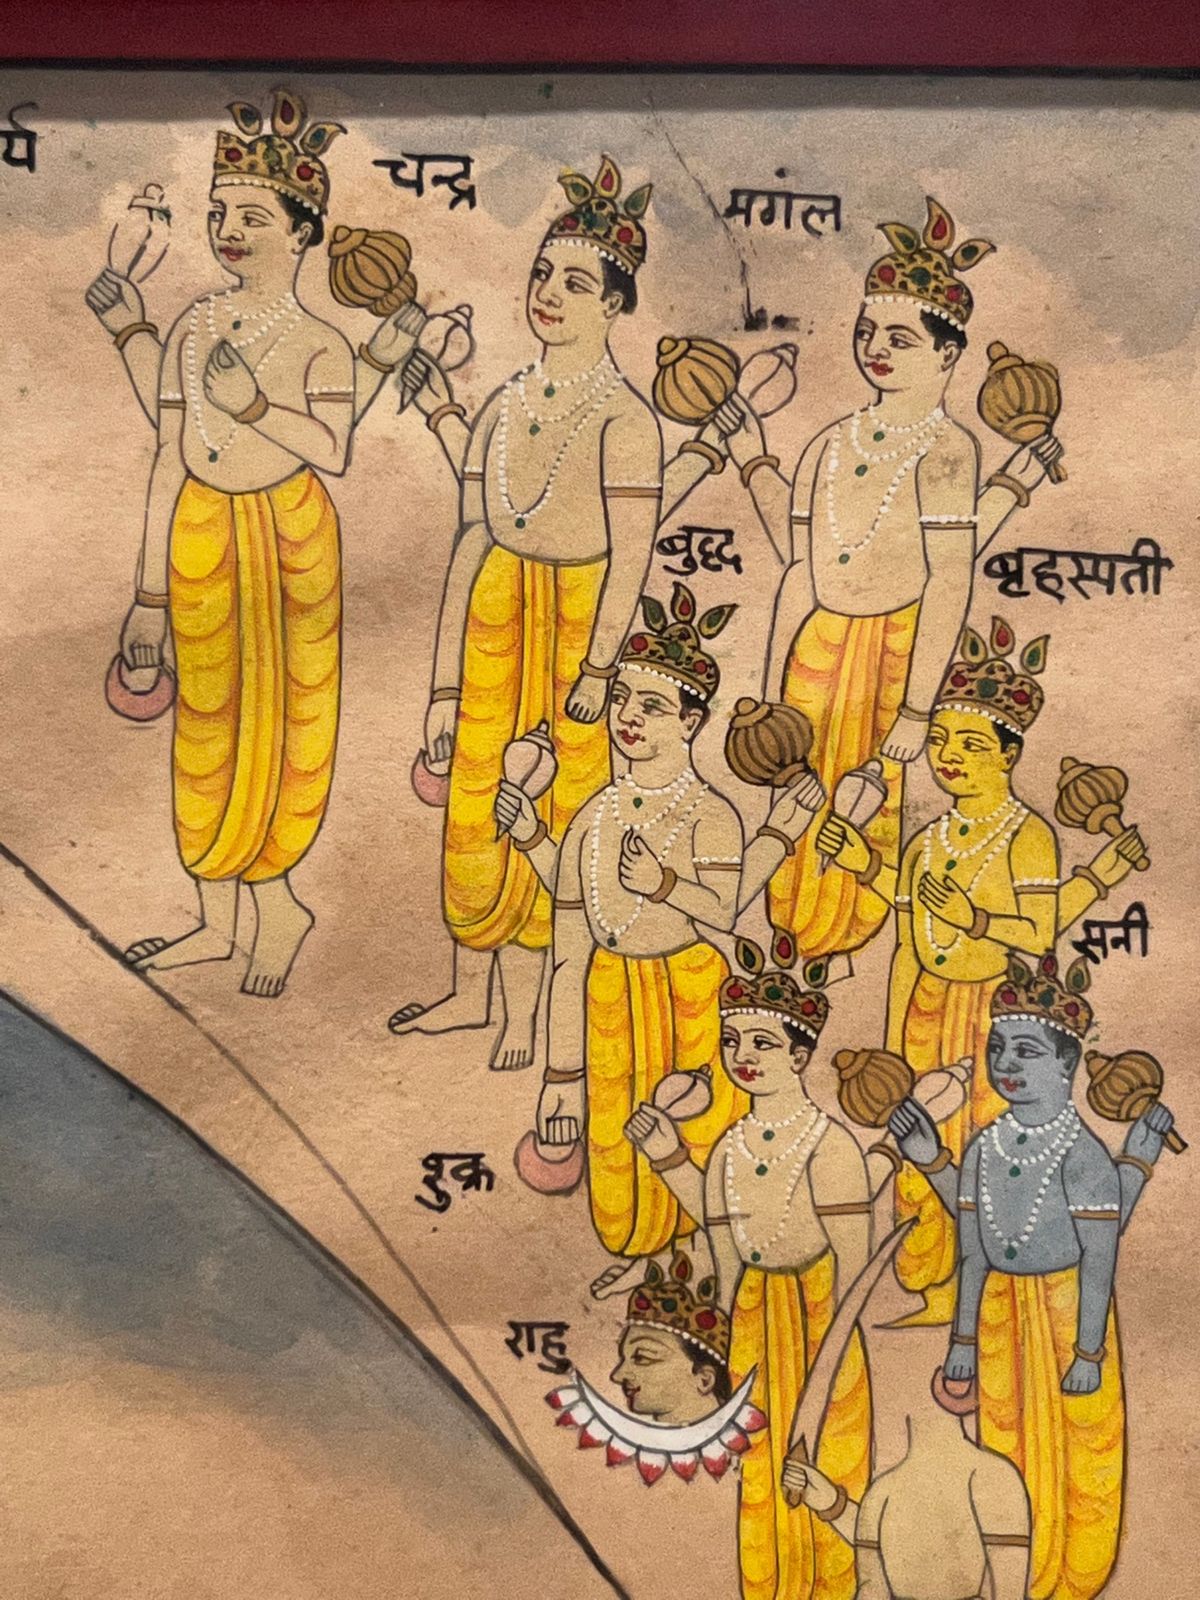 र्य
चन्द्र
मगंल
बुद्ध
बृहस्पती
सनी
शुक्र
राहु